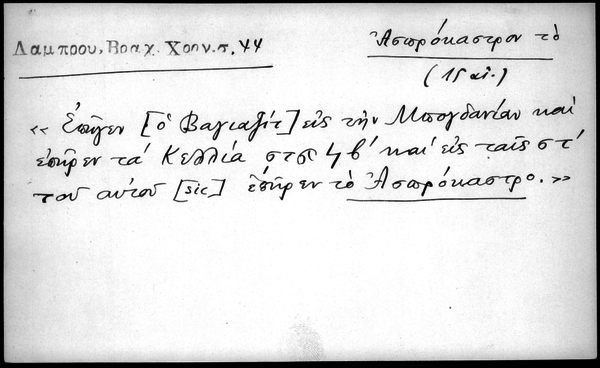 Λαμπρου, Βραχ. Χρον. σ. 44
Ἀσπρόκαστρον τὸ
(15 αἰ.)
« Ἐπῆγεν [ὁ Βαγιαζὶτ] εἰς τὴν Μπογδανίαν καὶ
ἐπῆρεν τὰ Κελλία στϡϞβ' καὶ εἰς ταῖς στ'
τοῦ αὐτοῦ [sic] ἐπῆρεν τὸ Ἀσπρόκαστρο. »